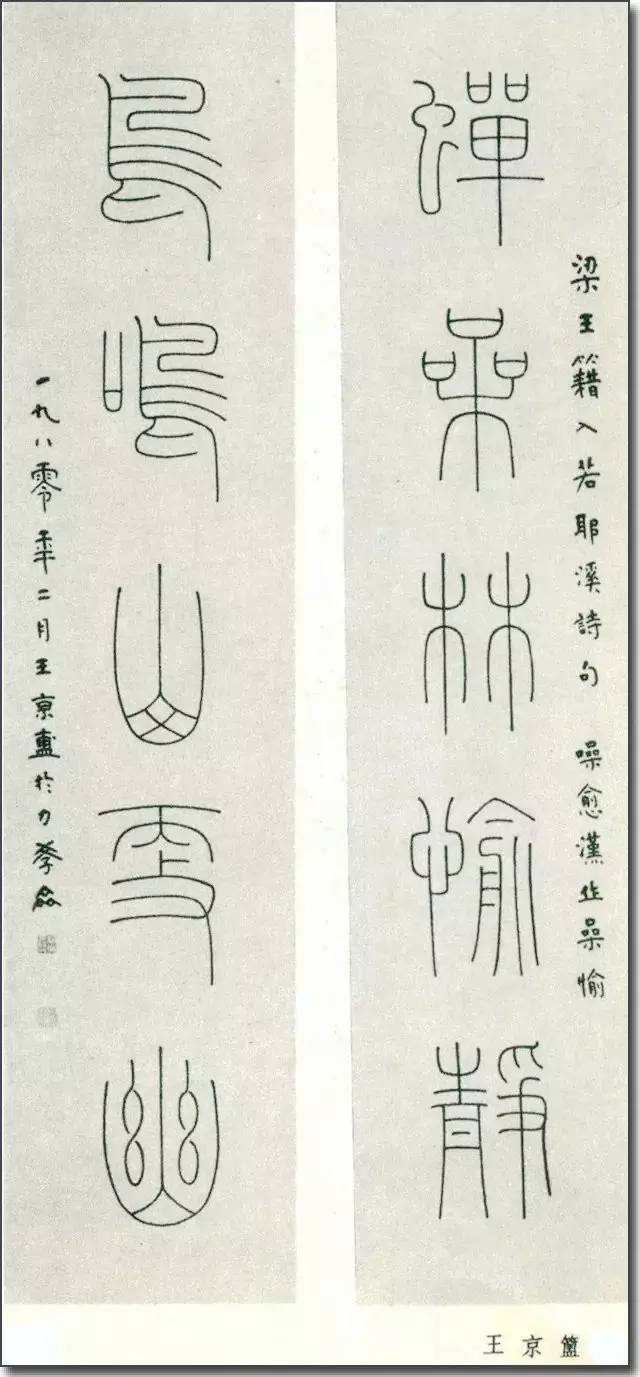 梁王籍入若耶溪詩句 噪愈漢作喿愉
蟬喿林愉靜
鳥鳴山更幽
一九八零年二月王京盙於力學盦
王京簠